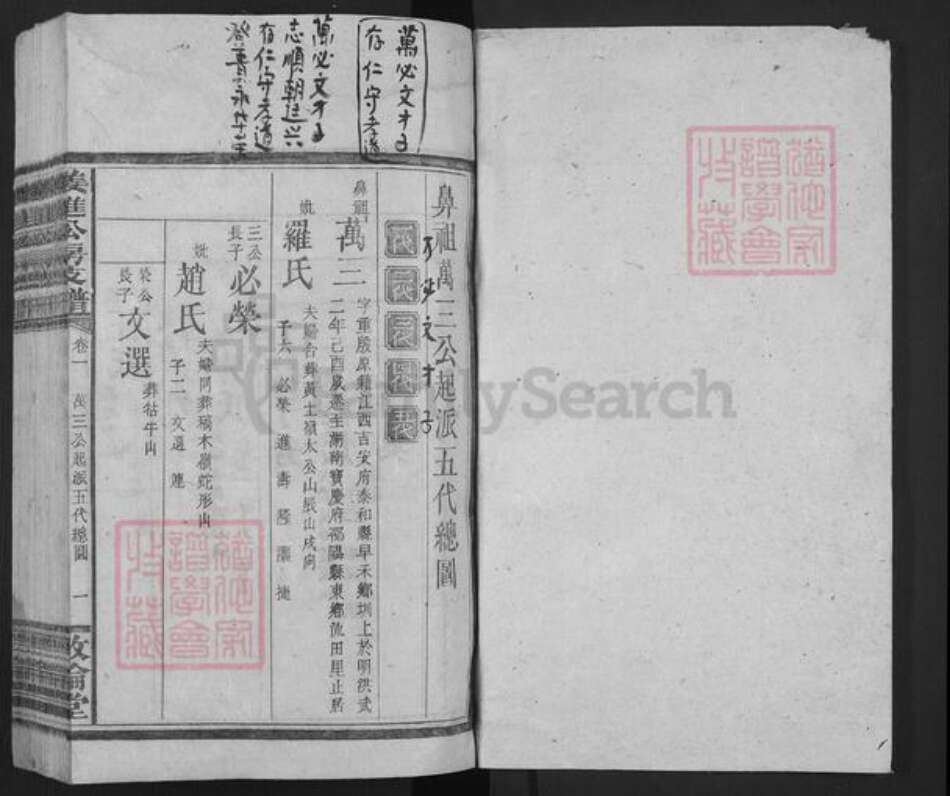 萬必文才子
存仁守孝道
萬必文才子
志順朝廷興
存仁守孝道
鼻祖萬三公起派五代總圖
必文才子
鼻祖 萬三 字重殷原籍江西吉安府泰和縣早禾鄉圳上於明洪武
二年己酉歲遷至湖南寶慶府邵陽縣東鄉流田里止居
妣 羅氏 夫婦合葬黃土嶺太公山辰山戌向
子六 必榮 進 壽 隆 漢 捷
三公長子 必榮
妣 趙氏 夫婦同葬積木嶺蛇形山
子二 文選 連
榮公長子 文選 葬牯牛山
進公房支譜
卷一
萬三公起派五代總圖
一
敦倫堂
譜學會
收藏
譜學會
收藏
FamilySearch